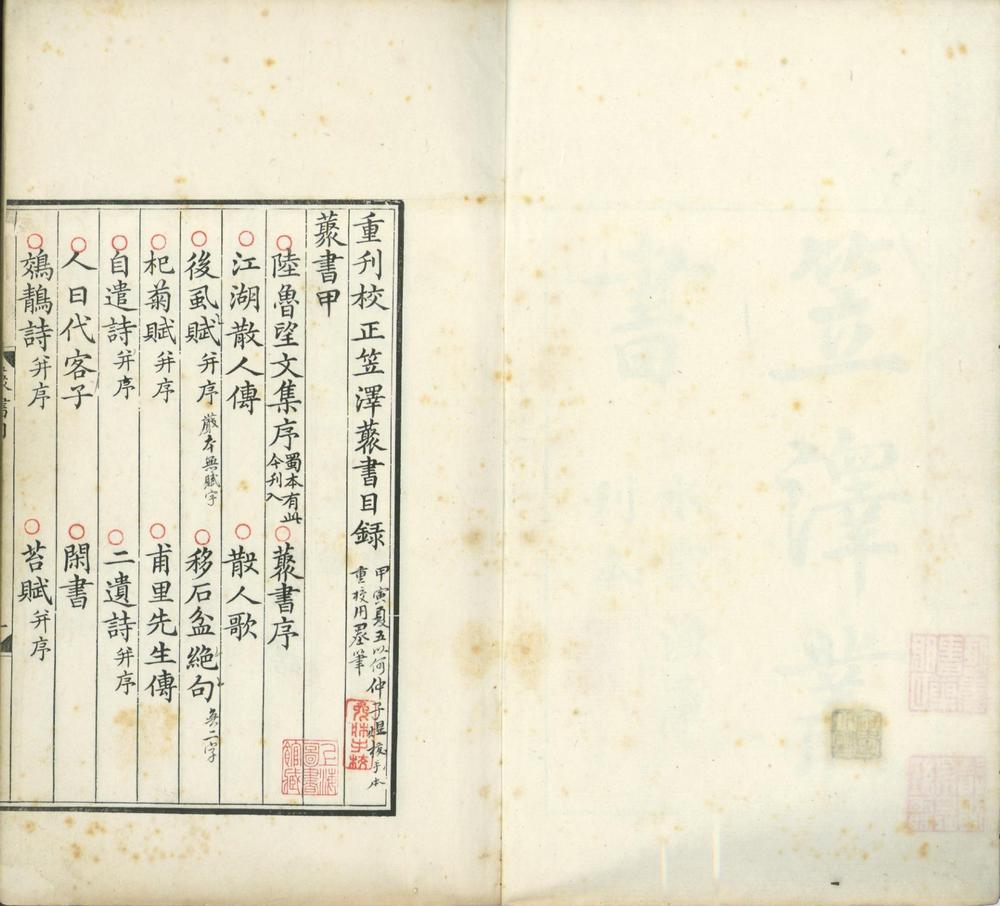 重刊校正笠澤叢書目録
甲寅夏五以何仲子煌校手本
重校用墨筆
叢書甲
陸魯望文集序 蜀本有此今刊入 叢書序
江湖散人傳 散人歌
後虱賦并序 嚴本無賦字 移石盆絕句 無二字
杞菊賦并序 甫里先生傳
自遣詩并序 二遺詩并序
人日代客子 閑書
鵁鶄詩并序 苔賦并序
上海圖書館藏
笠澤叢
書